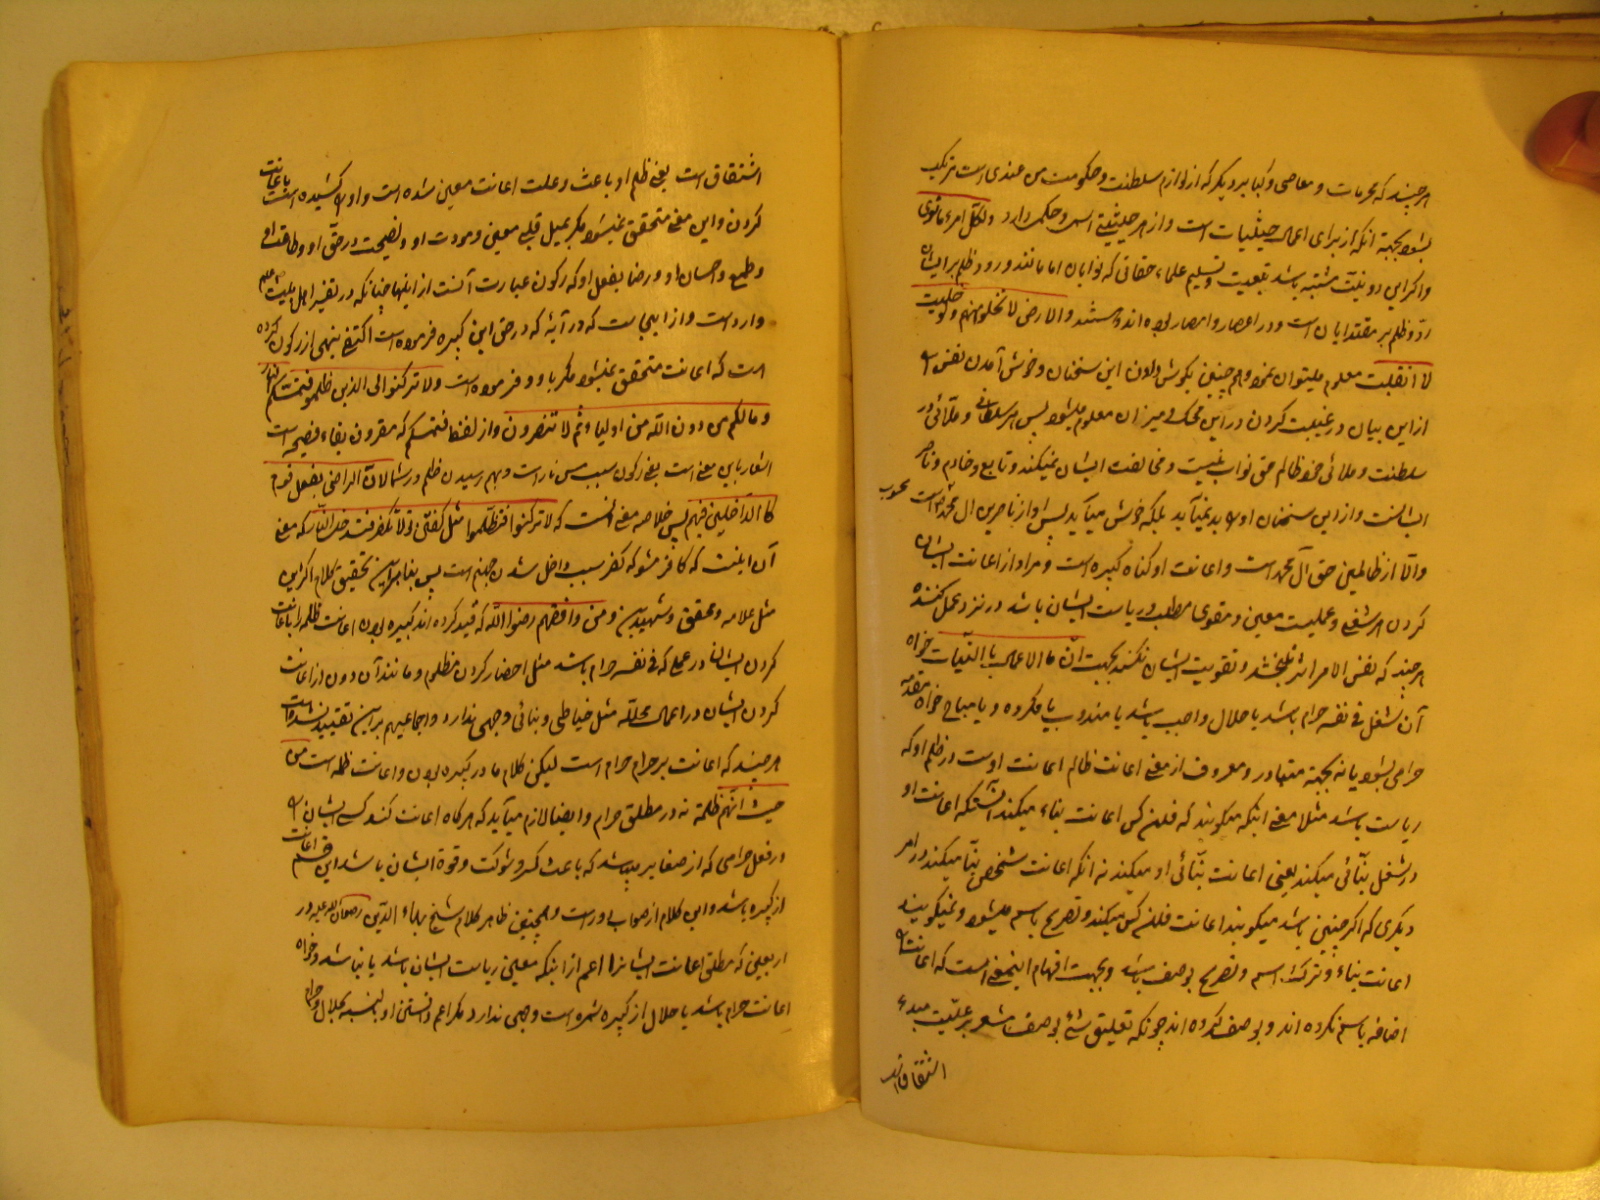 هر چند که محرمات و معاصی و کبایر دیگر که از لوازم سلطنت و حکومت من عندی است مرتکب
بشود بجهة انکه از برای اعمال حیثیات است و از هر حیثیتی اسم و حکمی دارد ولکل امرء مانوی
و اکر این دو نیت مشتبه باشد بتبعیت و تسلیم علماء حقانی که نوابان امامانند و رد و ظلم بر ایشان
رد و ظلم بر مقتدایان است و در اعصار و امصار بوده اند و هستند والارض لا تخلو منهم و
لا انقلبت معلوم میتوان نمود و هم چنین بکوش دادن این سخنان و خوش آمدن نفس او
از این بیان در غیبت کردن در این محک و میزان معلوم میشود پس هر سلطانی و ملائی در
سلطنت و ملائی خود ظالم حق نواب نیست و مخالفت ایشان نمیکند و تابع و خادم و ناصر
ایشانست و از این سخنان او را بد نمیآید بلکه خوش میآید پس او از ناصرین ال محمد است محسوب
والّا از ظالمین حق آل محمد است و اعانت او کناه کبیره است و مراد از اعانت ایشان
کردن هر شغلی و عملیست معین و مقوی مطلب و ریاست ایشان باشد در نزد عمل کننده
هر چند که نفس الامر اثر نبخشد و تقویت ایشان نکند بجهت انّما الاعمال بالنیّات خواه
آن شغل فی نفسه حرام باشد یا حلال واجب باشد یا مندوب یا مکروه و یا مباح خواه مقدمه
حرامی بشود یا نه بجهة متبادر و معروف از معنی اعانت ظالم اعانت اوست در ظلم او که
ریاست باشد مثلا معنی اینکه میکویند که فلان کس اعانت بناء میکند آنستکه اعانت او
در شغل بنّائی میکند یعنی اعانت بنّائی او میکند نه انکه اعانت شخص بنّا میکند در امر
دیکری که اکر چنین باشد میکویند اعانت فلان کس میکند و تصریح باسم میشود و نمیکویند
اعانت بناء و ترک اسم و تصریح بوصف باشد و بجهت افهام اینمعنی است که اعانت را
اضافه باسم نکرده اند و بوصف کرده اند چونکه تعلیق شئ بوصف مشعر بر علیّت مبدء
اشتقاق است
اشتقاق است یعنی ظلم او باعث و علت اعانت معین شده است و او را کشیده است باعانت
کردن و این معنی متحقق نمیشود مکر بمیل قلبی معین و مودت او و نصیحت در حق او و طاقت او
و طمع و احسان او و رضا بفعل او که رکون عبارت آنست از اینها چنانکه در تفسیر اهل بیت علیهم
وارد است و از اینجاست که در آیهٔ که در حق این کبیره فرموده است اکتفی بنهی از رکون کرده
است که اعانت متحقق نمیشود مکر باو و فرموده است ولا ترکنوا الی الذین ظلموا فتمسکم النار
و مالکم من دون الله من اولیاء ثم لا تنصرون و از لفظ فتمسکم که مقرون بفاء فصیحه است
اشعار باین معنی است یعنی رکون سبب مس نار است و بهم رسیدن ظلم در شما لانّ الراضی بفعل قوم
کالدّاخلین فیهم پس خلاصه معنی آنست که لا ترکنوا فتظلموا مثل کفتن و لا تکفر فتدخل النّار که معنی
آن اینست که کافر مشو که کفر سبب داخل شدن جهنم است پس بنا بر این تحقیق کلام اکثرین
مثل علامه و محقق و شهیدین و من وافقهم رضوا الله که قید کرده اند کبیره بودن اعانت ظلمه را باعانت
کردن ایشان در عملی که فی نفسه حرام باشد مثل احضار کردن مظلوم و مانند آن دون از اعانت
کردن ایشان در اعمال محلله مثل خیاطی و بنائی وجهی ندارد و اجماعیهم بر این تقیید نشده است
هر چند که اعانت بر حرام حرام است لیکن کلام ما در کبیره بودن و اعانت ظلمه است من
حیث انّهم ظلمة نه در مطلق حرام و ایضا لازم میآید که هرکاه اعانت کند کسی ایشان را
در فعل حرامی که از صغایر باشد که باعث کسر و شوکت و قوة ایشان باشد این قسم اعانت
از کبیره باشد و این کلام از صواب دور است و همچنین ظاهر کلام شیخ بهاء الدّین رضوان الله علیه در
اربعین که مطلق اعانت ایشانرا اعم از اینکه معین ریاست ایشان باشد یا نباشد و خواه
اعانت حرام باشد یا حلال از کبیره شمرده است وجهی ندارد مکر اعم دانستن او بالنسبه بحلال و حرام